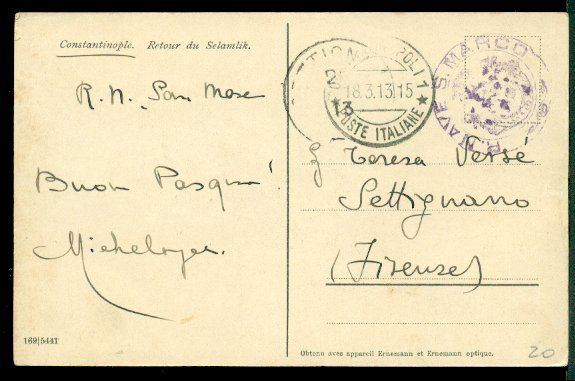 Constantinople. Retour du Selamlik.
R. N. San Marco
Buona Pasqua!
Michelangelo.
18.3.13 15
POSTE ITALIANE
R. NAVE S. MARCO
Teresa Versé
Settignano
(Firenze)
169|5441
Obtenu avec appareil Ernemann et Ernemann optique.
20